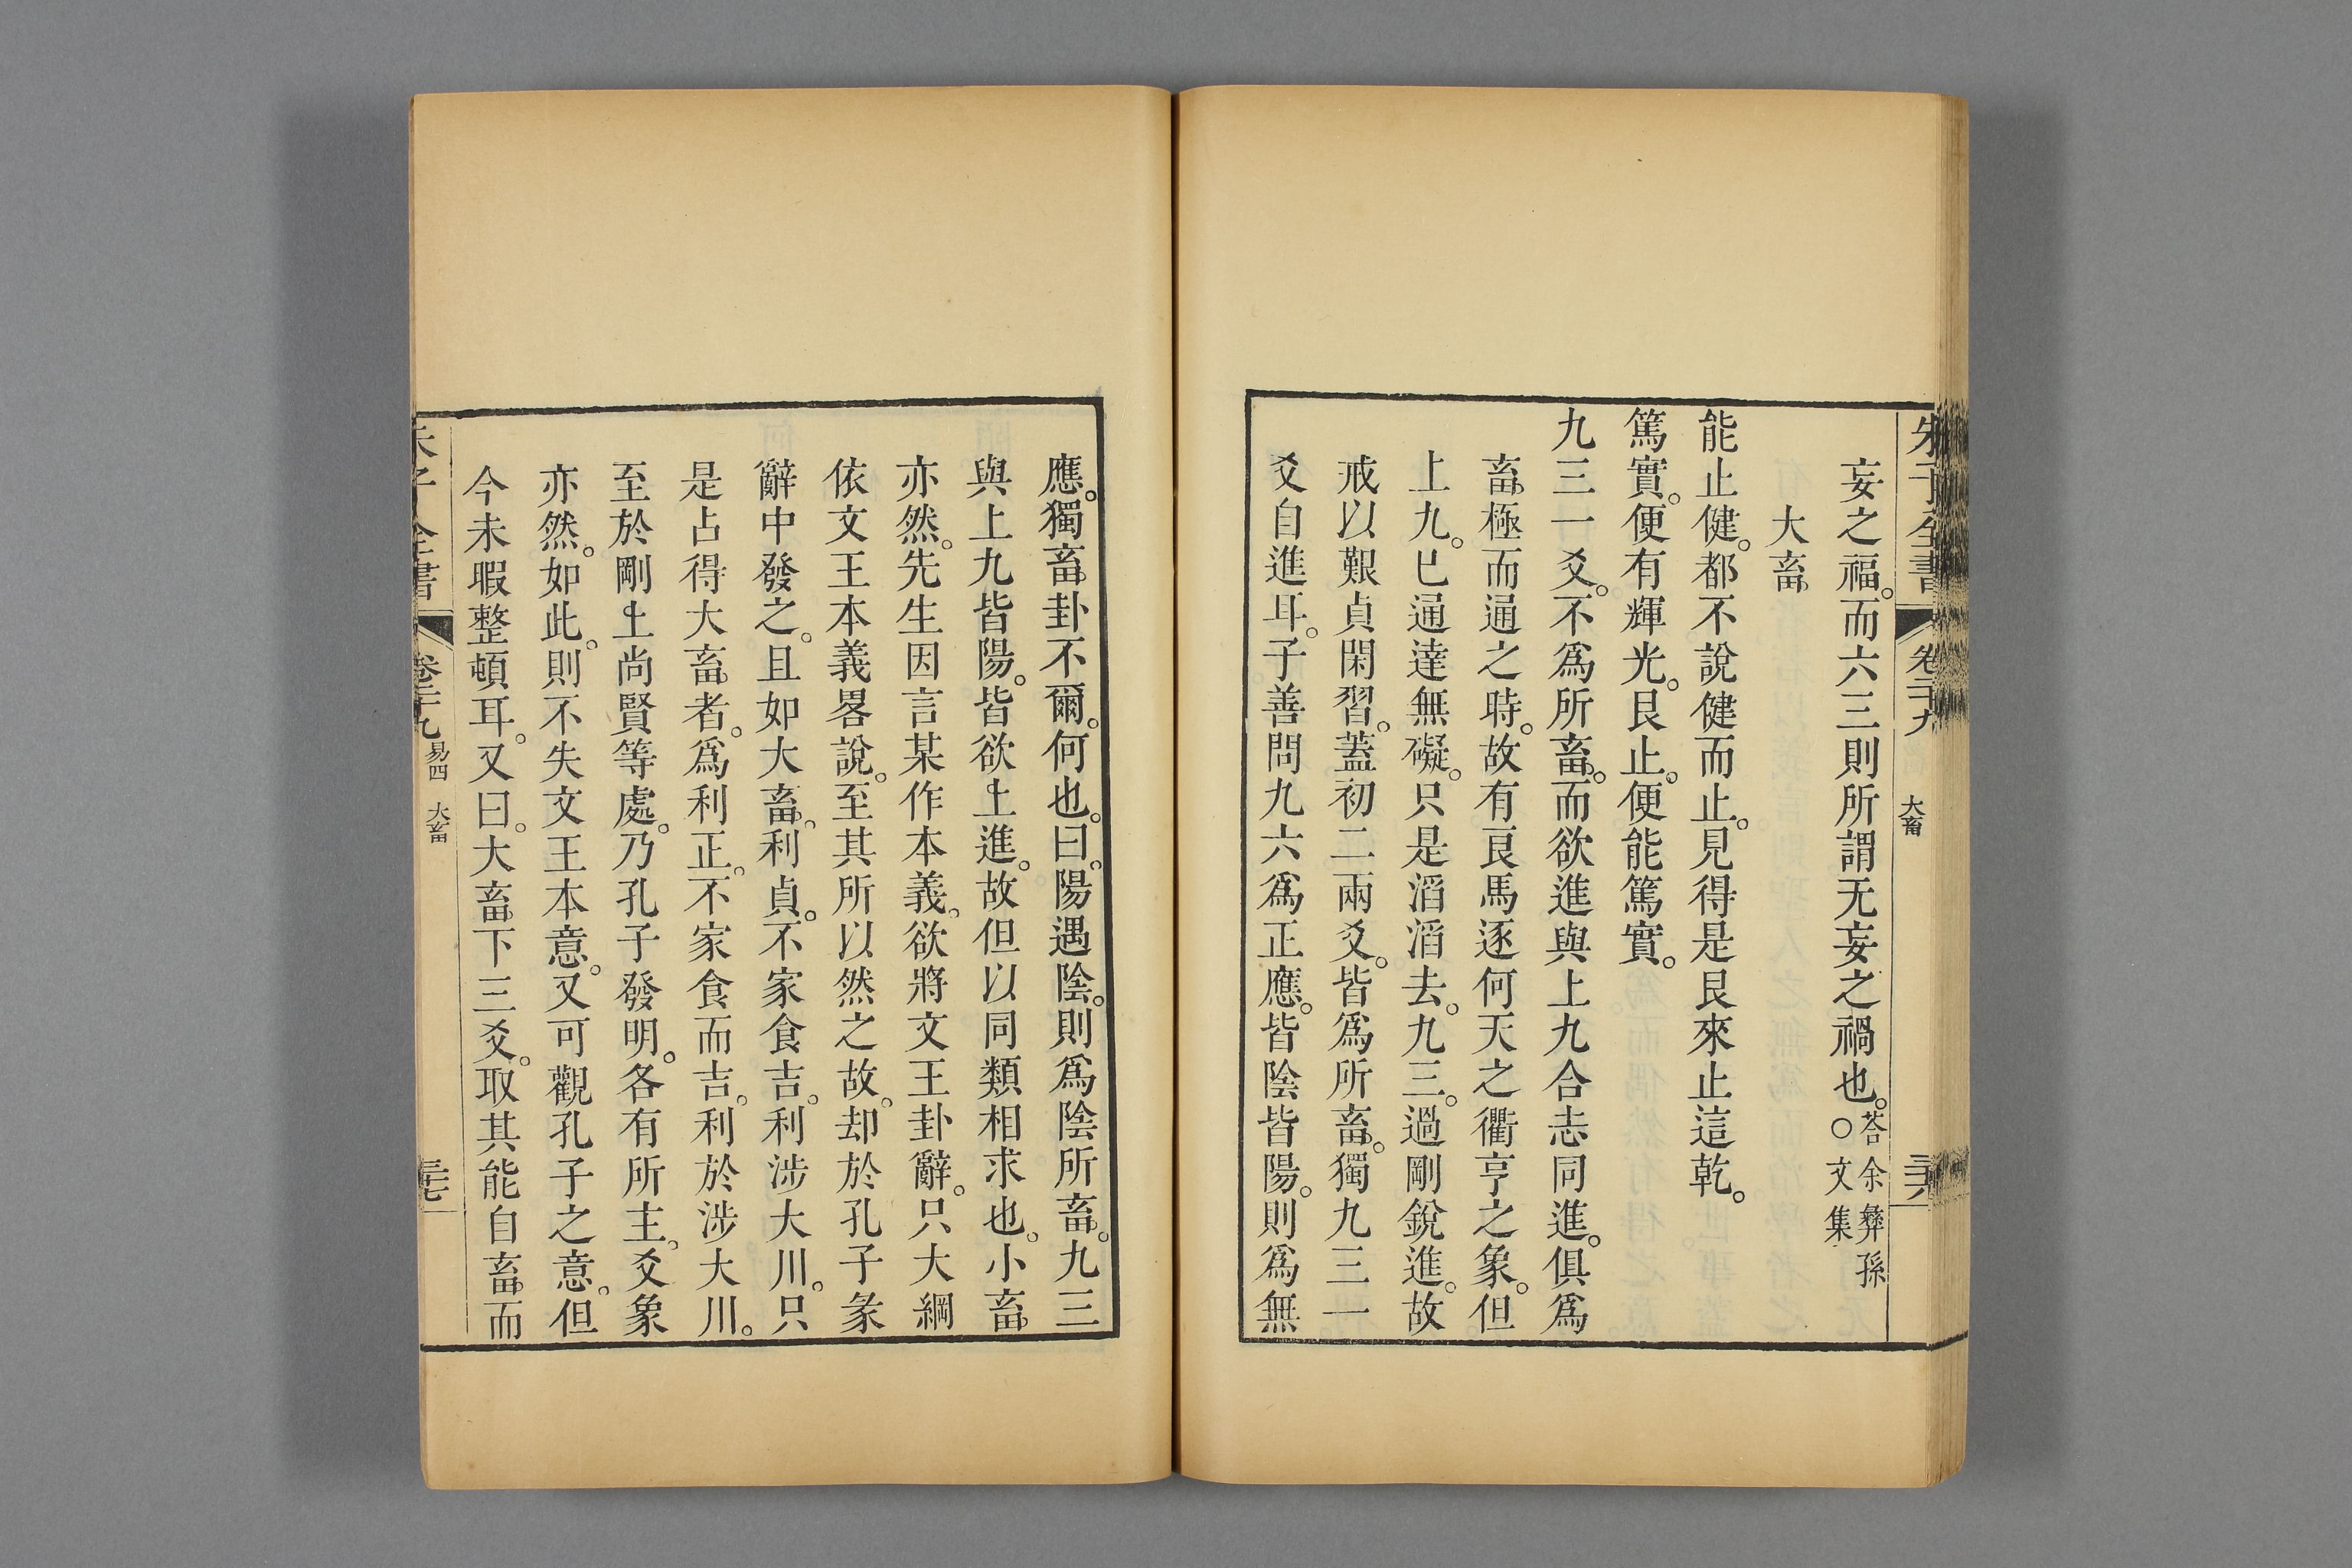 朱子全書 卷二十九 大畜 三六
妄之福。而六三則所謂无妄之禍也。答余彝孫○文集
大畜
能止健。都不說健而止。見得是艮來止這乾。
篤實。便有輝光。艮止。便能篤實。
九三一爻。不爲所畜。而欲進與上九合志同進。俱爲
畜極而通之時。故有良馬逐何天之衢亨之象。但
上九。已通達無礙。只是滔滔去。九三。過剛銳進。故
戒以艱貞閑習。蓋初二兩爻。皆爲所畜。獨九三一
爻自進耳。子善問九六爲正應。皆陰皆陽。則爲無
應。獨畜卦不爾。何也。曰。陽遇陰。則爲陰所畜。九三
與上九皆陽。皆欲上進。故但以同類相求也。小畜
亦然。先生因言某作本義。欲將文王卦辭。只大綱
依文王本義畧說。至其所以然之故。却於孔子彖
辭中發之。且如大畜。利貞。不家食吉。利涉大川。只
是占得大畜者。爲利正。不家食而吉。利於涉大川。
至於剛上尚賢等處。乃孔子發明。各有所主。爻象
亦然。如此。則不失文王本意。又可觀孔子之意。但
今未暇整頓耳。又曰。大畜下三爻。取其能自畜而
朱子全書 卷二十九 易四 大畜 三七